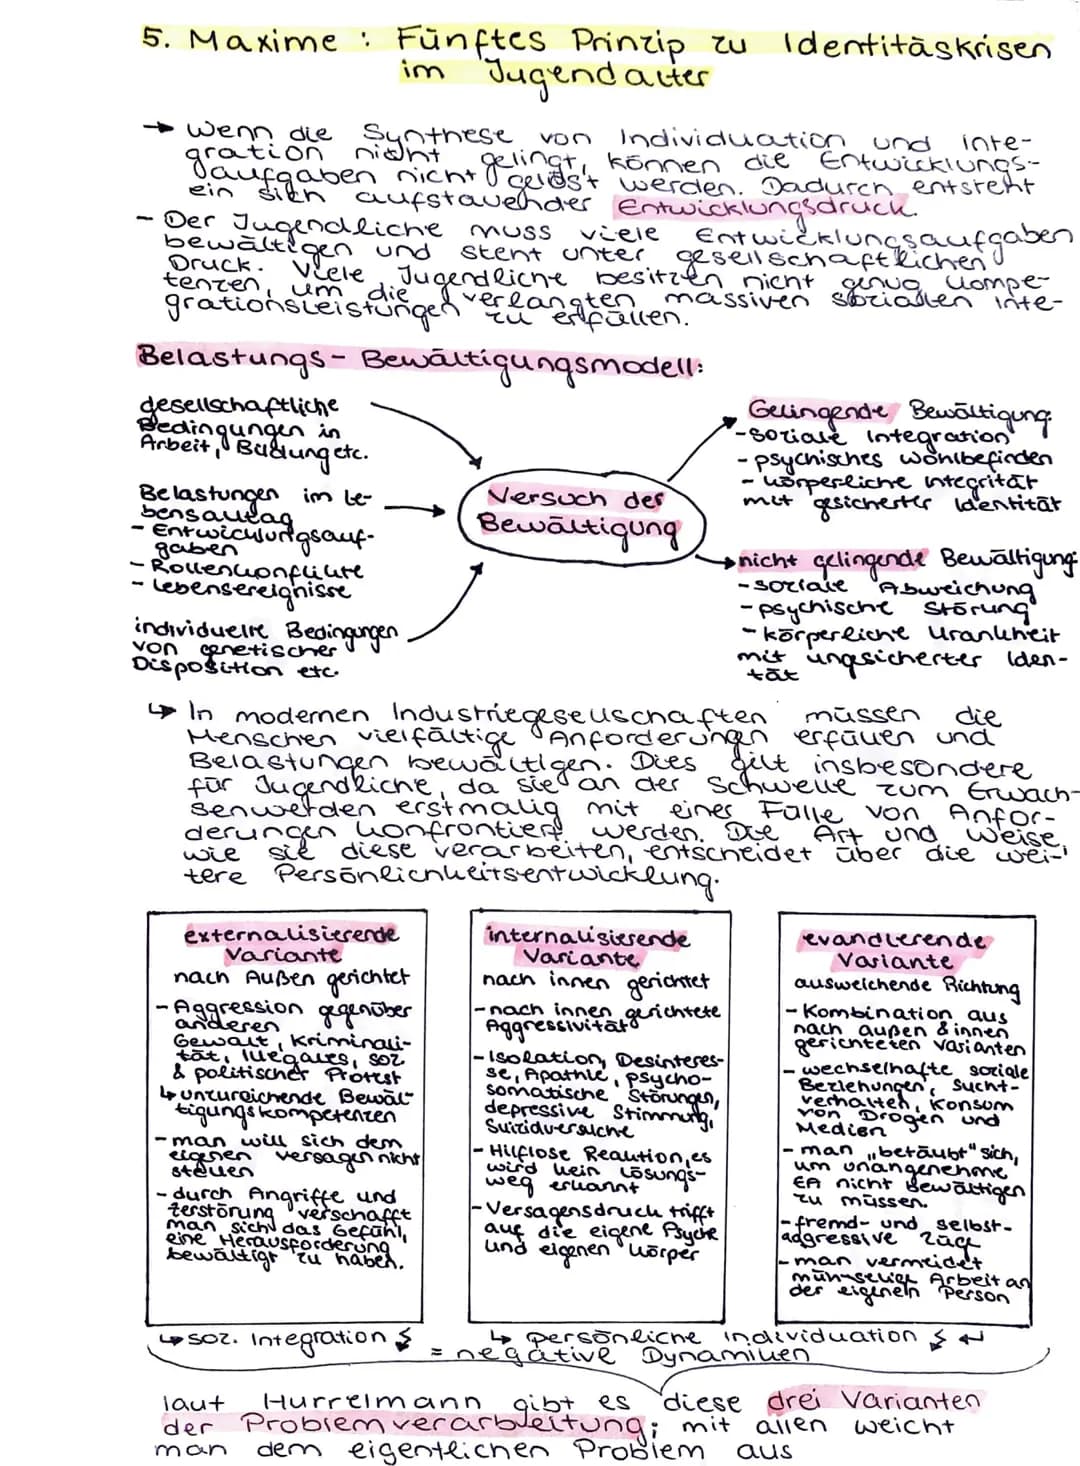 5. Maxime : Fünftes Prinzip zu Identitäskrisen
im Jugendalter
→ Wenn die Synthese von Individuation und Inte-
gration nicht gelingt, können die Entwicklungs-
aufgaben nicht gelöst werden. Dadurch entsteht
ein sich aufstauender Entwicklungsdruck.
- Der Jugendliche muss viele Entwicklungsaufgaben
bewältigen und steht unter gesellschaftlichen
Druck. Viele Jugendliche besitzen nicht genug Kompe-
tenzen, um die verlangten massiven sozialen Inte-
grationsleistungen zu erfüllen.
Belastungs-Bewältigungsmodell:
gesellschaftliche
Bedingungen in
Arbeit, Bildung etc.
Belastungen im Le-
bensalltag
- Entwicklungsauf-
gaben
- Rollenkonflikte
- Lebensereignisse
individuelle Bedingungen
von genetischer
Disposition etc.
Versuch der
Bewältigung
Gelingende Bewältigung:
- soziale Integration
- psychisches Wohlbefinden
- körperliche Integrität
mit gesicherter Identität
nicht gelingende Bewältigung:
- soziale Abweichung
- psychische Störung
- körperliche Krankheit
mit ungsicherter Iden-
tät
↳ In modernen Industriegesellschaften müssen die
Menschen vielfältige Anforderungen erfüllen und
Belastungen bewältigen. Dies gilt insbesondere
für Jugendliche, da sie an der Schwelle zum Erwach-
senwerden erstmalig mit einer Fülle von Anfor-
derungen konfrontiert werden. Die Art und Weise,
wie sie diese verarbeiten, entscheidet über die wei-
tere Persönlichkeitsentwicklung.
externalisierende
Variante
nach Außen gerichtet
- Aggression gegenüber
anderen
Gewalt, Kriminali-
tät, Illegales, soz.
& politischer Protest
↳ unzureichende Bewäl-
tigungskompetenzen
- man will sich dem
eigenen Versagen nicht
stellen
- durch Angriffe und
Zerstörung verschafft
man sich das Gefühl,
eine Herausforderung
bewältigt zu haben.
internalisierende
Variante
nach innen gerichtet
- nach innen gerichtete
Aggressivität
- Isolation, Desinteres-
se, Apathie, psycho-
somatische Störungen,
depressive Stimmung,
Suizidversuche
- Hilflose Reaktion, es
wird kein Lösungs-
weg erkannt
- Versagensdruck trifft
auf die eigene Psyche
und eigenen Körper
evandierende
Variante
ausweichende Richtung
- Kombination aus
nach außen & innen
gerichteten Varianten
- wechselhafte soziale
Beziehungen, Sucht-
verhalten, Konsum
von Drogen und
Medien
- man „betäubt" sich,
um unangenehme
EA nicht bewältigen
zu müssen.
- fremd- und selbst-
aggressive Züge
- man vermeidet
mühselige Arbeit an
der eigenen Person
↳ soz. Integration ↯
↳ persönliche Individuation ↯ ↵
= negative Dynamiken
laut Hurrelmann gibt es diese drei Varianten
der Problemverarbeitung; mit allen weicht
man dem eigentlichen Problem aus